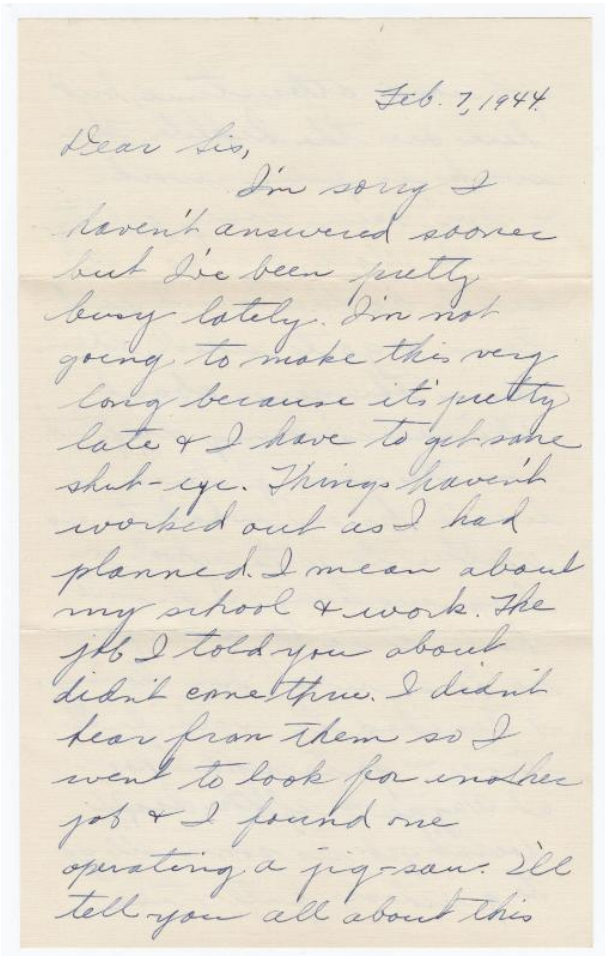 Feb. 7, 1944.
Dear Sis,
I'm sorry I
haven't answered sooner
but I've been pretty
busy lately. I'm not
going to make this very
long because it's pretty
late & I have to get some
shut-eye. Things haven't
worked out as I had
planned. I mean about
my school & work. The
job I told you about
didn't come thru. I didn't
hear from them so I
went to look for another
job & I found one
operating a jig-saw. I'll
tell you all about this